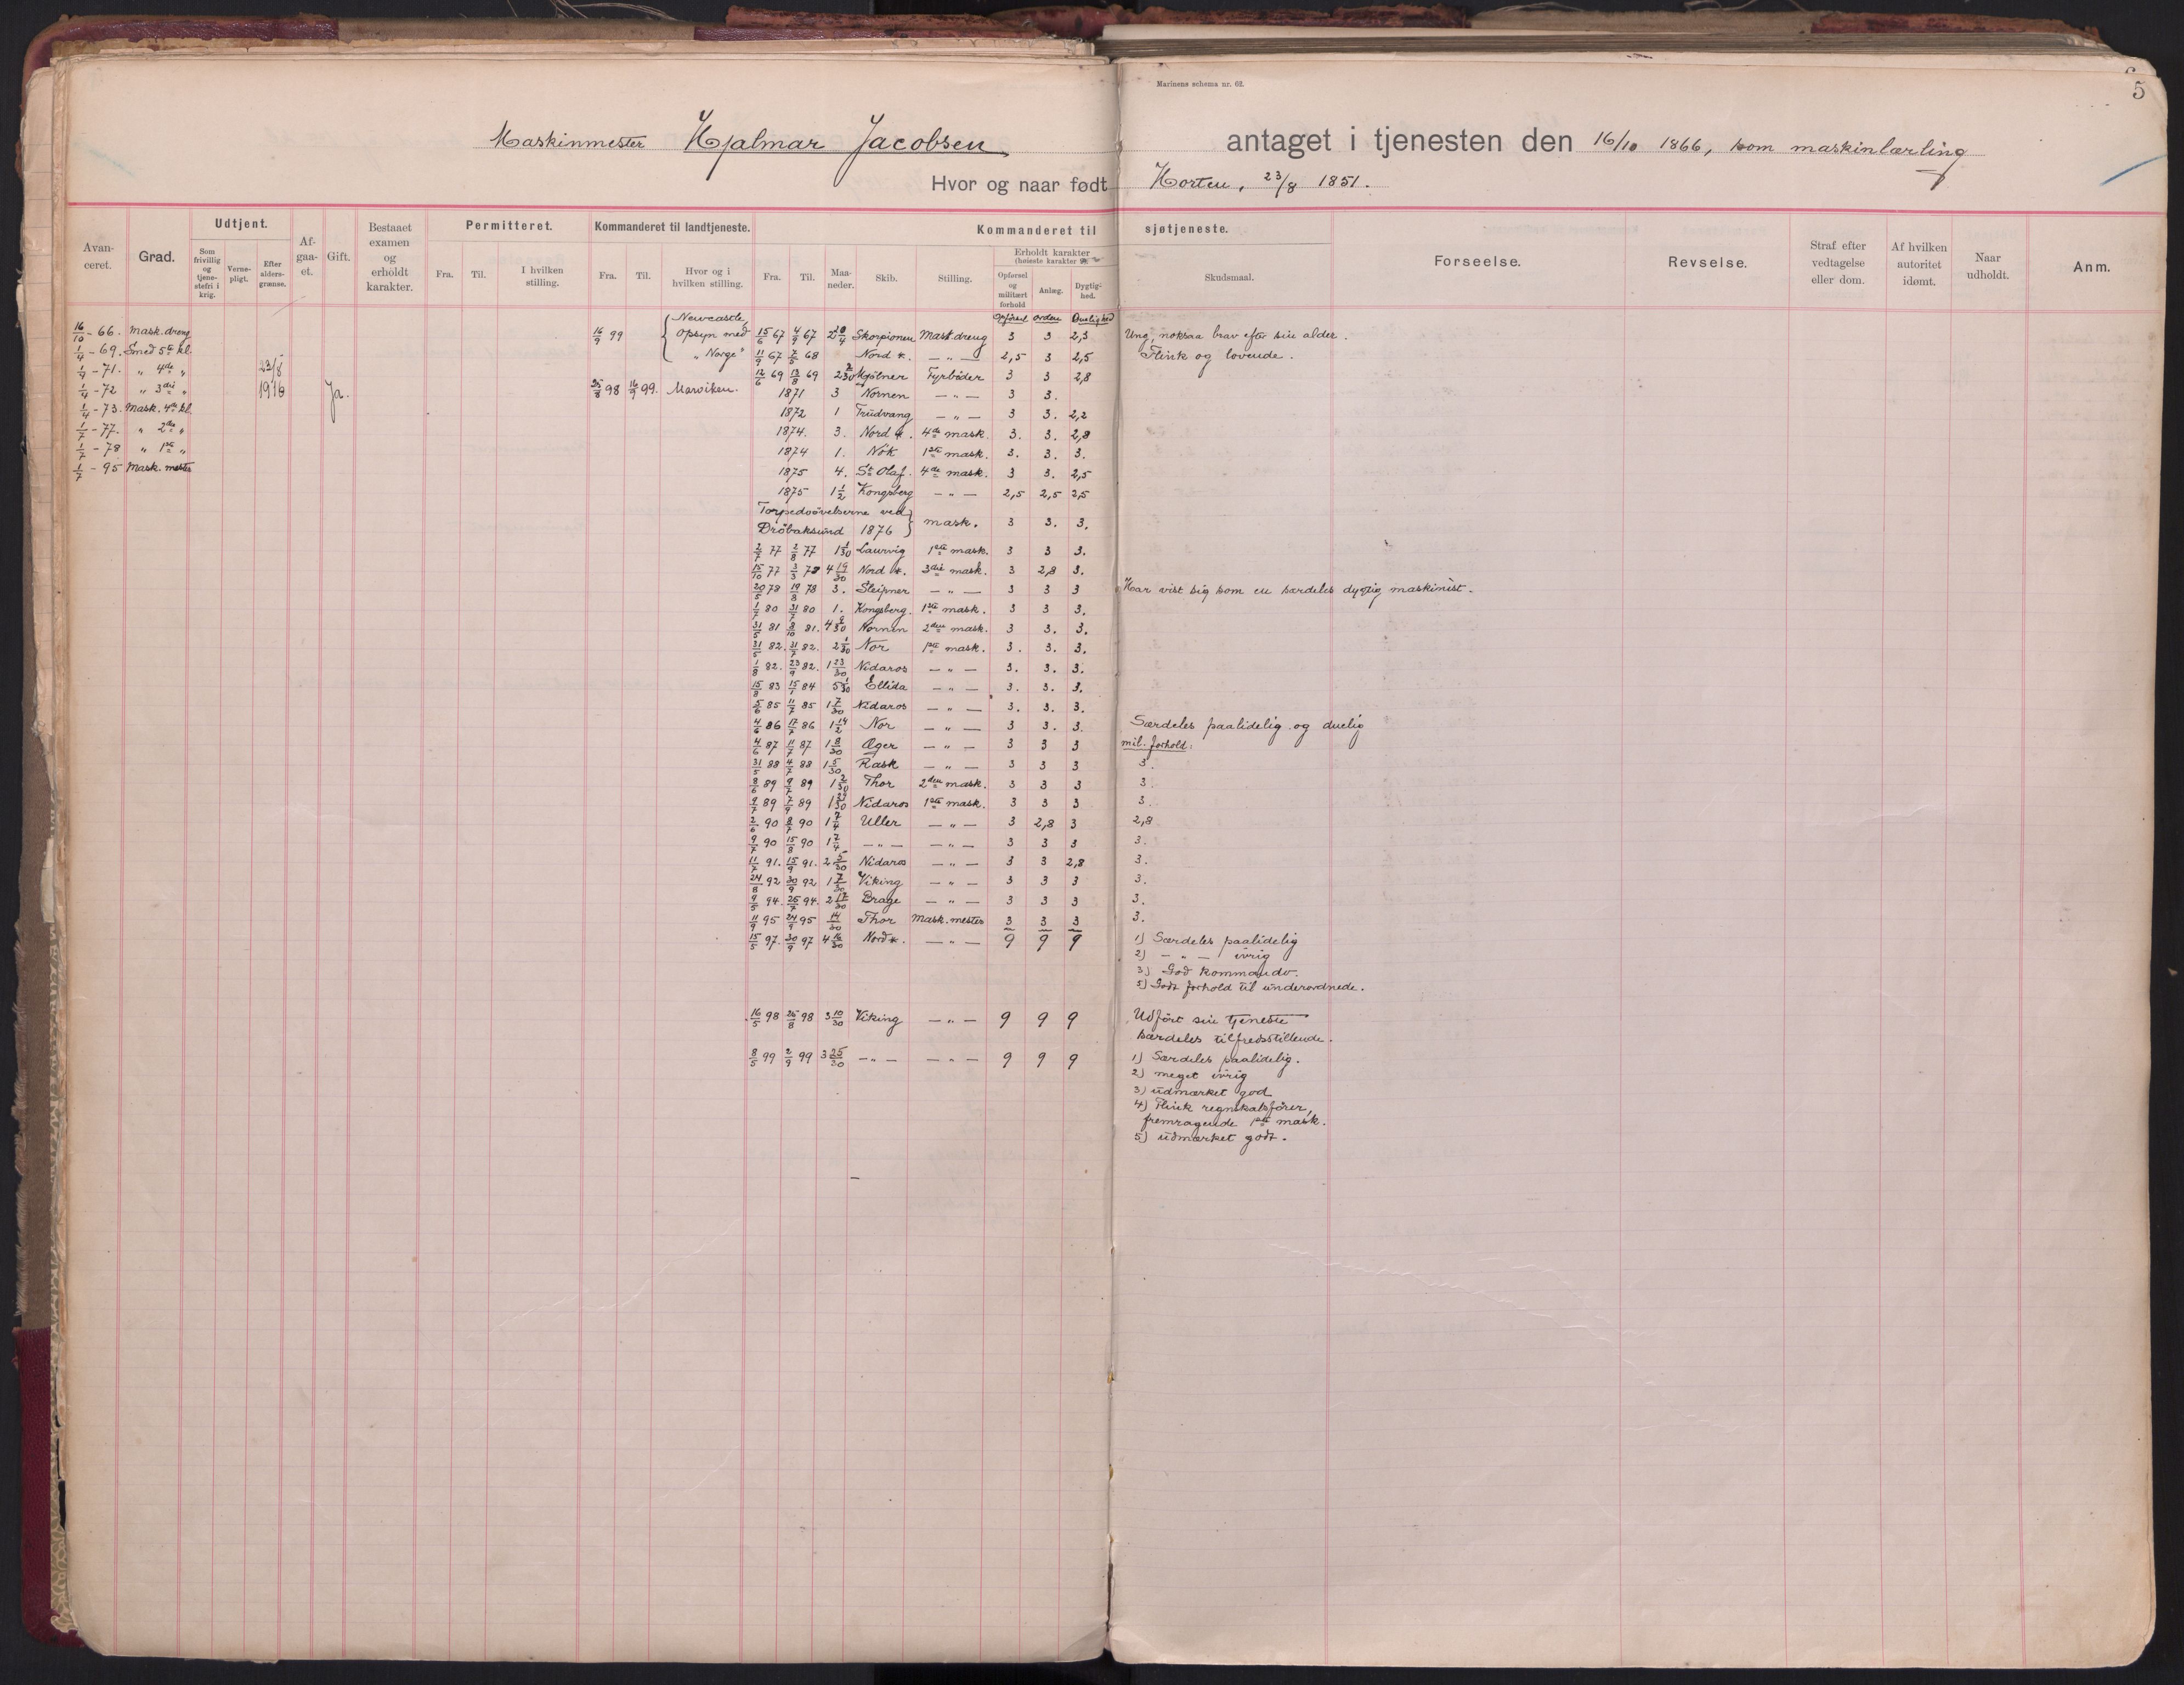 Marinens schema nr. 62.
5
Maskinmester Hjalmar Jacobsen antaget i tjenesten den 16/10 1866, som maskinlærling
Hvor og naar født Horten, 23/8 1851.
Avanceret. Grad. Udtjent. Afgaaet. Gift. Bestaaet examen og erholdt karakter. Permitteret. Kommanderet til landtjeneste. Kommanderet til sjøtjeneste. Forseelse. Revselse. Straf efter vedtagelse eller dom. Af hvilken autoritet idømt. Naar udholdt. Anm.
Som frivillig og tjenestefri i krig. Vernepligt. Efter aldersgrænse. Fra. Til. I hvilken stilling. Fra. Til. Hvor og i hvilken stilling. Fra. Til. Maaneder. Skib. Stilling. Erholdt karakter (høieste karakter Opførsel og militært forhold Anlæg. Dygtighed. Skudsmaal.
Opførsel Orden Duelighed
16/10 - 66. Mask. dreng
1/4 - 69. Smed 5te kl.
1/4 - 71. " 4de "
1/4 - 72 " 3die "
1/4 - 73. Mask. 4de kl.
1/7 - 77. " 2den "
1/7 - 78 " 1ste "
1/7 - 95 Mask. mester
23/8
1916
Ja.
16/9 99 { Newcastle, Opsyn med "Norge"
25/8 98 16/9 99. Marviken.
15/6 67 4/9 67 Skorpionen Mask. dreng 3 3 2,3 Ung, noksaa brav efter sin alder.
11/9 67 7/5 68 Nord *. — " — 2,5 3 2,5 Flink og lovende.
12/6 69 13/8 69 2 2/30 Mjølner Fyrbøder 3 3 2,8
1871 3 Nornen — " — 3 3.
1872 1 Trudvang — " — 3 3. 2,2
1874. 3. Nord *. 4de mask. 3. 3. 2,8
1874 1. Nök 1ste mask. 3. 3. 3.
1875 4. St Olaf. 4de mask. 3 3. 2,5
1875 1 1/2 Kongsberg — " — 2,5 2,5 2,5
Torpedoøvelserne ved
Drøbaksund 1876 } mask. 3 3. 3.
2/7 77 2/8 77 1 1/30 Laurvig 1ste mask. 3 3 3.
15/10 77 3/3 78 4 19/30 Nord *. 3die mask. 3 2,8 3.
20/5 78 19/8 78 3. Sleipner — " — 3 3 3 Har vist sig som en særdeles dygtig maskinist.
1/7 80 31/7 80 1. Kongsberg. 1ste mask. 3 3 3.
31/5 81 8/10 81. Nornen 2den mask. 3 3. 3.
31/5 82. 31/7 82. 2 1/30 Nor 1ste mask. 3. 3. 3.
1/8 82. 23/9 82. 1 23/30 Nidaros — " — 3. 3. 3.
15/8 83 15/1 84 5 1/30 Ellida — " — 3. 3. 3.
5/6 85 11/7 85 1 7/30 Nidaros — " — 3. 3. 3.
4/6 86 17/7 86 Nor — " — 3 3. 3. Særdeles paalidelig og duelig
4/6 87 11/7 87 1 8/30 Æger — " — 3 3 3 mil. forhold:
31/5 88 4/7 88 1 5/30 Rask — " — 3 3 3 3.
8/6 89 9/7 89 1 2/30 Thor 2den mask. 3 3 3 3.
9/7 89 7/9 89 1 29/30 Nidaros 1ste mask. 3 3 3 3.
2/6 90 8/7 90 Uller — " — 3 2,8 3 2,8
9/7 90 15/8 90 — " — — " — 3 3 3 3.
11/7 91. 15/9 91. 2 5/30 Nidaros — " — 3 3 2,8 3.
24/8 92 30/9 92 1 7/30 Viking — " — 3 3 3 3.
9/5 94. 25/7 94. 2 17/30 Brage — " — 3 3 3 3.
11/9 95 24/9 95 14/30 Thor Mask. mester 3 3 3 3.
15/5 97. 30/9 97 4 16/30 Nord *. — " — 9 9 9 1) Særdeles paalidelig
2) — " — ivrig
3) God kommando.
5) Godt forhold til underordnede.
16/5 98 25/8 98 3 10/30 Viking — " — 9 9 9 Udført sin tjeneste
særdeles tilfredsstillende.
8/5 99 2/9 99 3 25/30 — " — — " — 9 9 9 1) Særdeles paalidelig.
2) meget ivrig
3) udmærket god
4) Flink regnskabsfører,
fremragende 1ste mask.
5) udmærket godt.